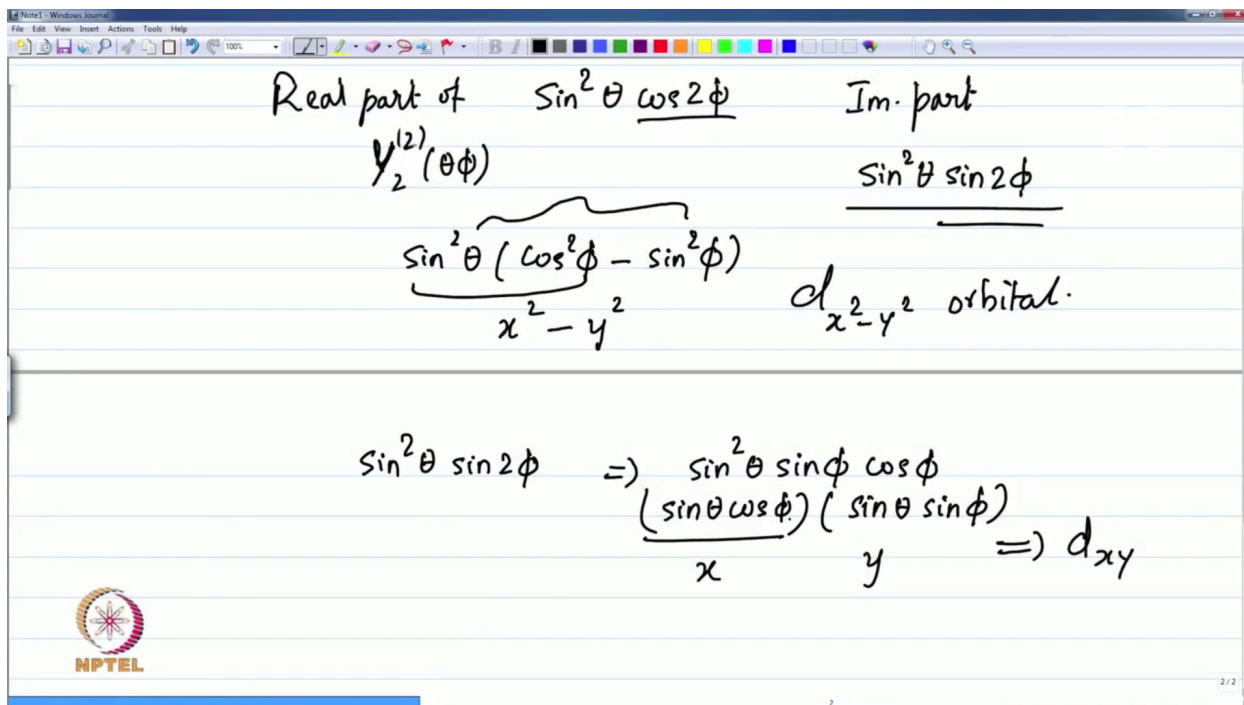 Note1 - Windows Journal
File Edit View Insert Actions Tools Help
100% B I
Real part of sin²θ cos2ϕ Im. part
Y₂⁽²⁾(θϕ)
sin²θ sin2ϕ
sin²θ (cos²ϕ – sin²ϕ)
x² – y² d_{x²–y²} orbital.
sin²θ sin2ϕ =) sin²θ sinϕ cosϕ
(sinθ cosϕ) (sinθ sinϕ)
x y =) d_{xy}
NPTEL
2 / 2
2